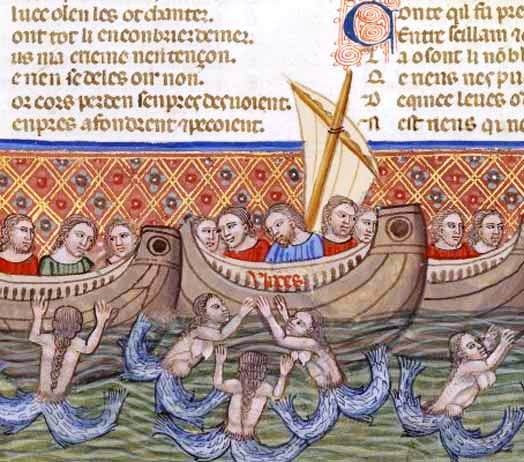 luec oien les or chanter.
ont tot li enconbrier demer.
us ma eneine nentençon.
e nen se deles oir non.
or cors perden senpres desuoient.
enpres afondrent ⁊ pecoient.
Conte qil fu pre
Entre sillam
a o sont li nob
e neus nes pui
equince leues o
est neus qi ne
Vlixes